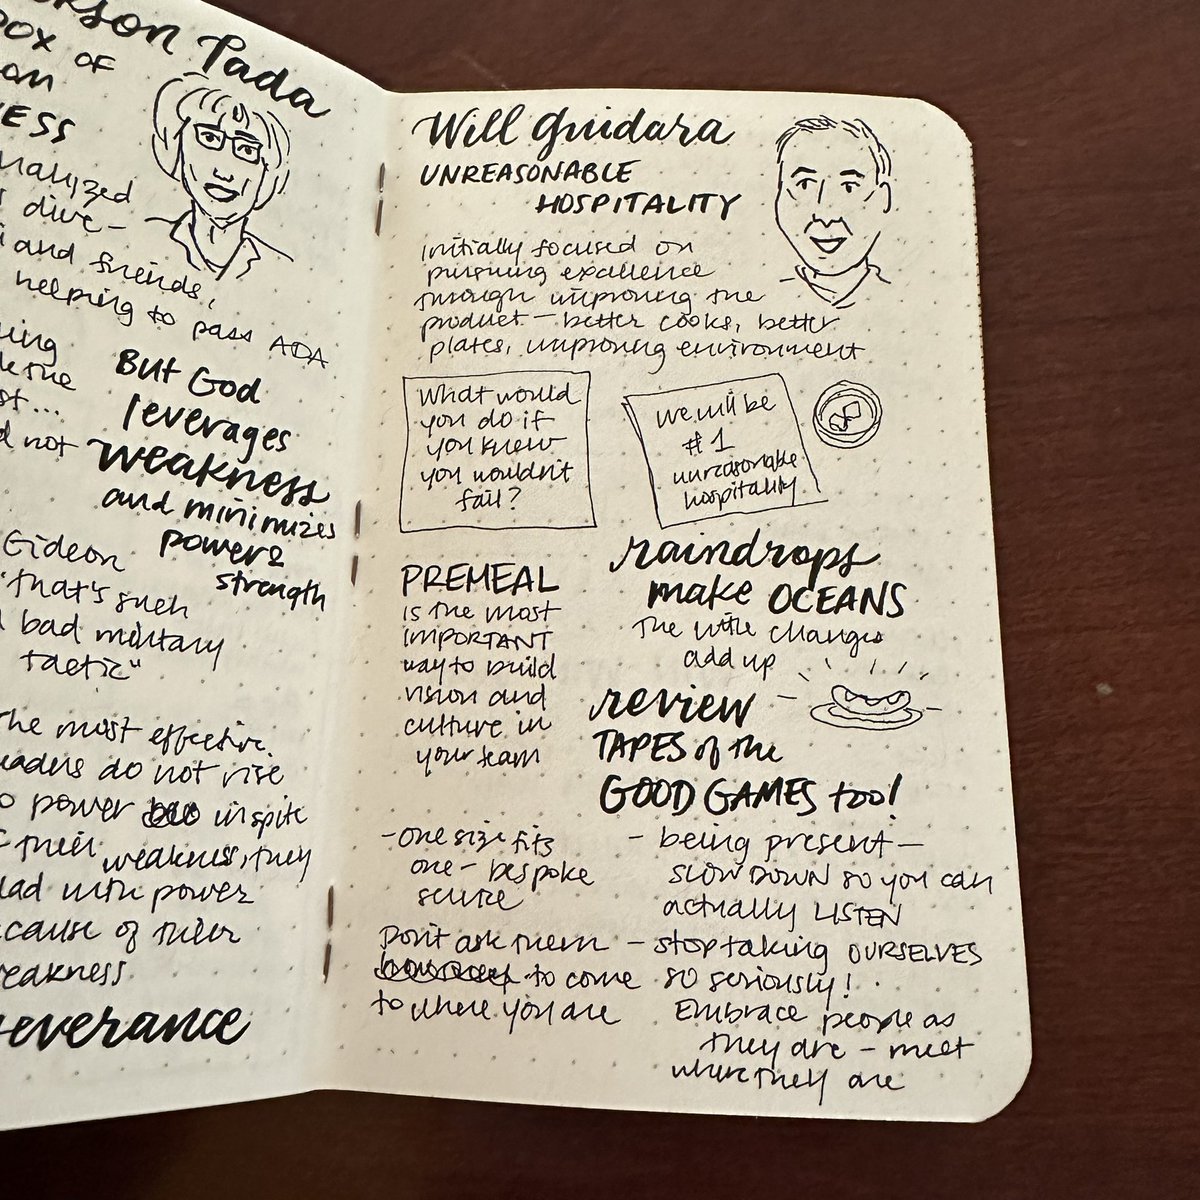 Pada
OF
manized
dive-
and friends,
helping to pass ADA
But God
leverages
weakness
and minimizes
power &
strength
not
Gideon
"that's such
bad military
tactic"
The most effective
leaders do not rise
to power in spite
of their weakness, they
lead with power
because of their
weakness
Perseverance
Will Guidara
UNREASONABLE
HOSPITALITY
Initially focused on
pursuing excellence
through improving the
product - better cooks, better
plates, improving environment
What would
you do if
you knew
you wouldn't
fail?
we will be
#1
unreasonable
hospitality
raindrops
make OCEANS
The little changes
add up
PREMEAL
is the most
IMPORTANT
way to build
vision and
culture in
your team
review
TAPES of the
GOOD GAMES too!
- one size fits
one - bespoke
service
Don't ask them
to come
to where you are
- being present -
SLOW DOWN so you can
actually LISTEN
- stop taking OURSELVES
so seriously!
Embrace people as
they are - meet
where they are